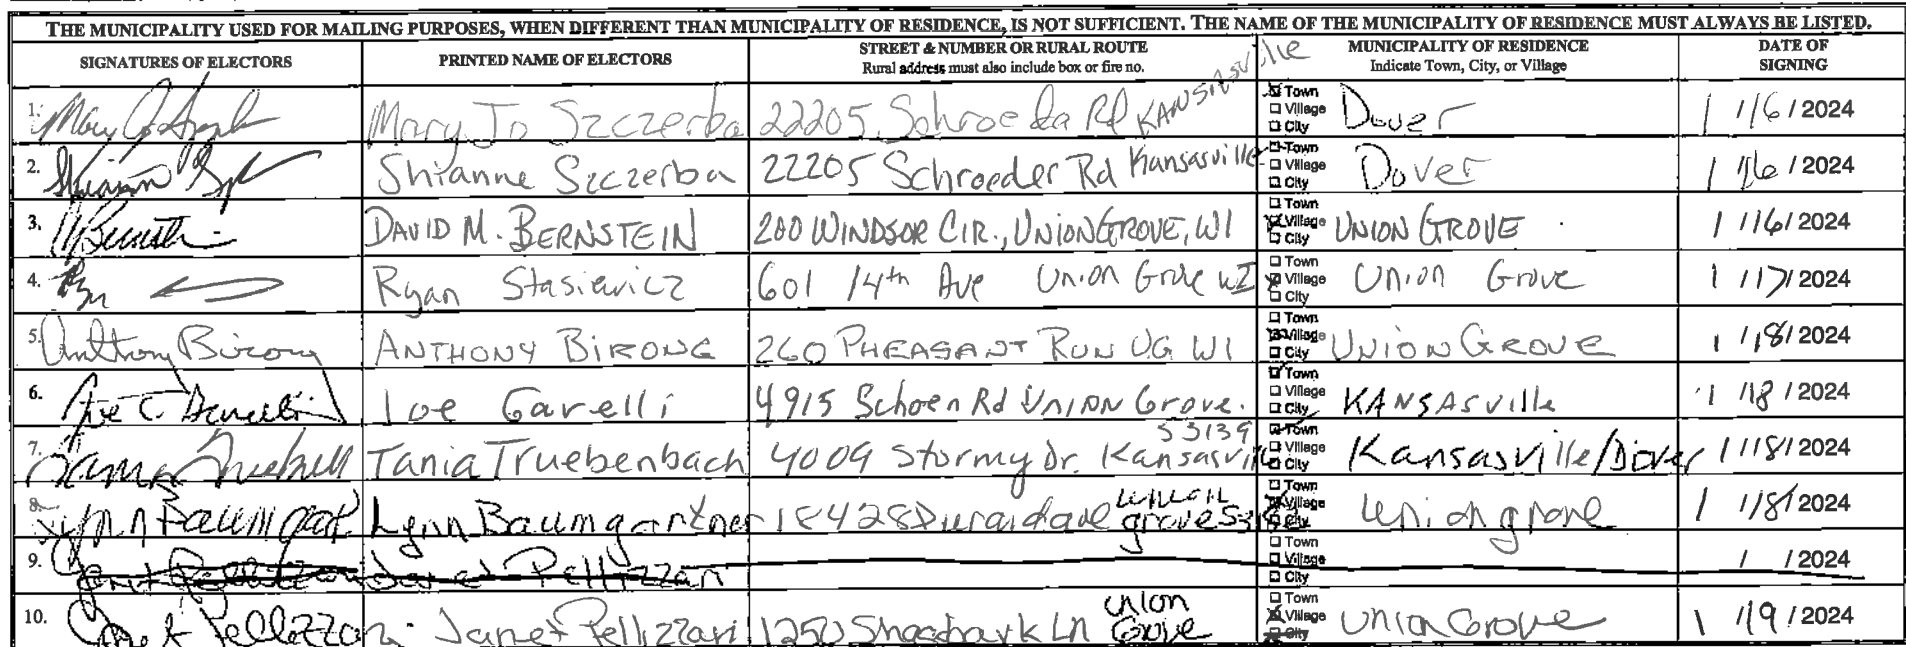 THE MUNICIPALITY USED FOR MAILING PURPOSES, WHEN DIFFERENT THAN MUNICIPALITY OF RESIDENCE, IS NOT SUFFICIENT. THE NAME OF THE MUNICIPALITY OF RESIDENCE MUST ALWAYS BE LISTED.
SIGNATURES OF ELECTORS PRINTED NAME OF ELECTORS STREET & NUMBER OR RURAL ROUTE MUNICIPALITY OF RESIDENCE DATE OF
Rural address must also include box or fire no. Indicate Town, City, or Village SIGNING
1. Mary Jo Szczerba 22205 Schroeda Rd KANSASville Town Village City Dover 1/16/2024
2. Shianne Szczerba 22205 Schroeder Rd Kansasville Town Village City Dover 1/16/2024
3. DAVID M. BERNSTEIN 200 WINDSOR CIR., UNION GROVE, WI Town Village City UNION GROVE 1/16/2024
4. Ryan Stasievicz 601 14th Ave Union Grove WI Town Village City Union Grove 1/17/2024
5. Anthony Birong ANTHONY BIRONG 260 PHEASANT RUN UG WI Town Village City UNION GROVE 1/18/2024
6. Joe Garelli 4915 Schoen Rd UNION Grove. Town Village City KANSASville 1/18/2024
7. Tania Truebenbach 4009 Stormy Dr. Kansasville 53139 Town Village City Kansasville/Dover 1/18/2024
8. Lynn Baumgartner 18428 Durand ave union grove Town Village City Union grove 1/18/2024
9. Janet Pellizzari Town Village City / /2024
10. Janet Pellizzari Janet Pellizzari 1250 Shagbark Ln Union Grove Town Village City Union Grove 1/19/2024